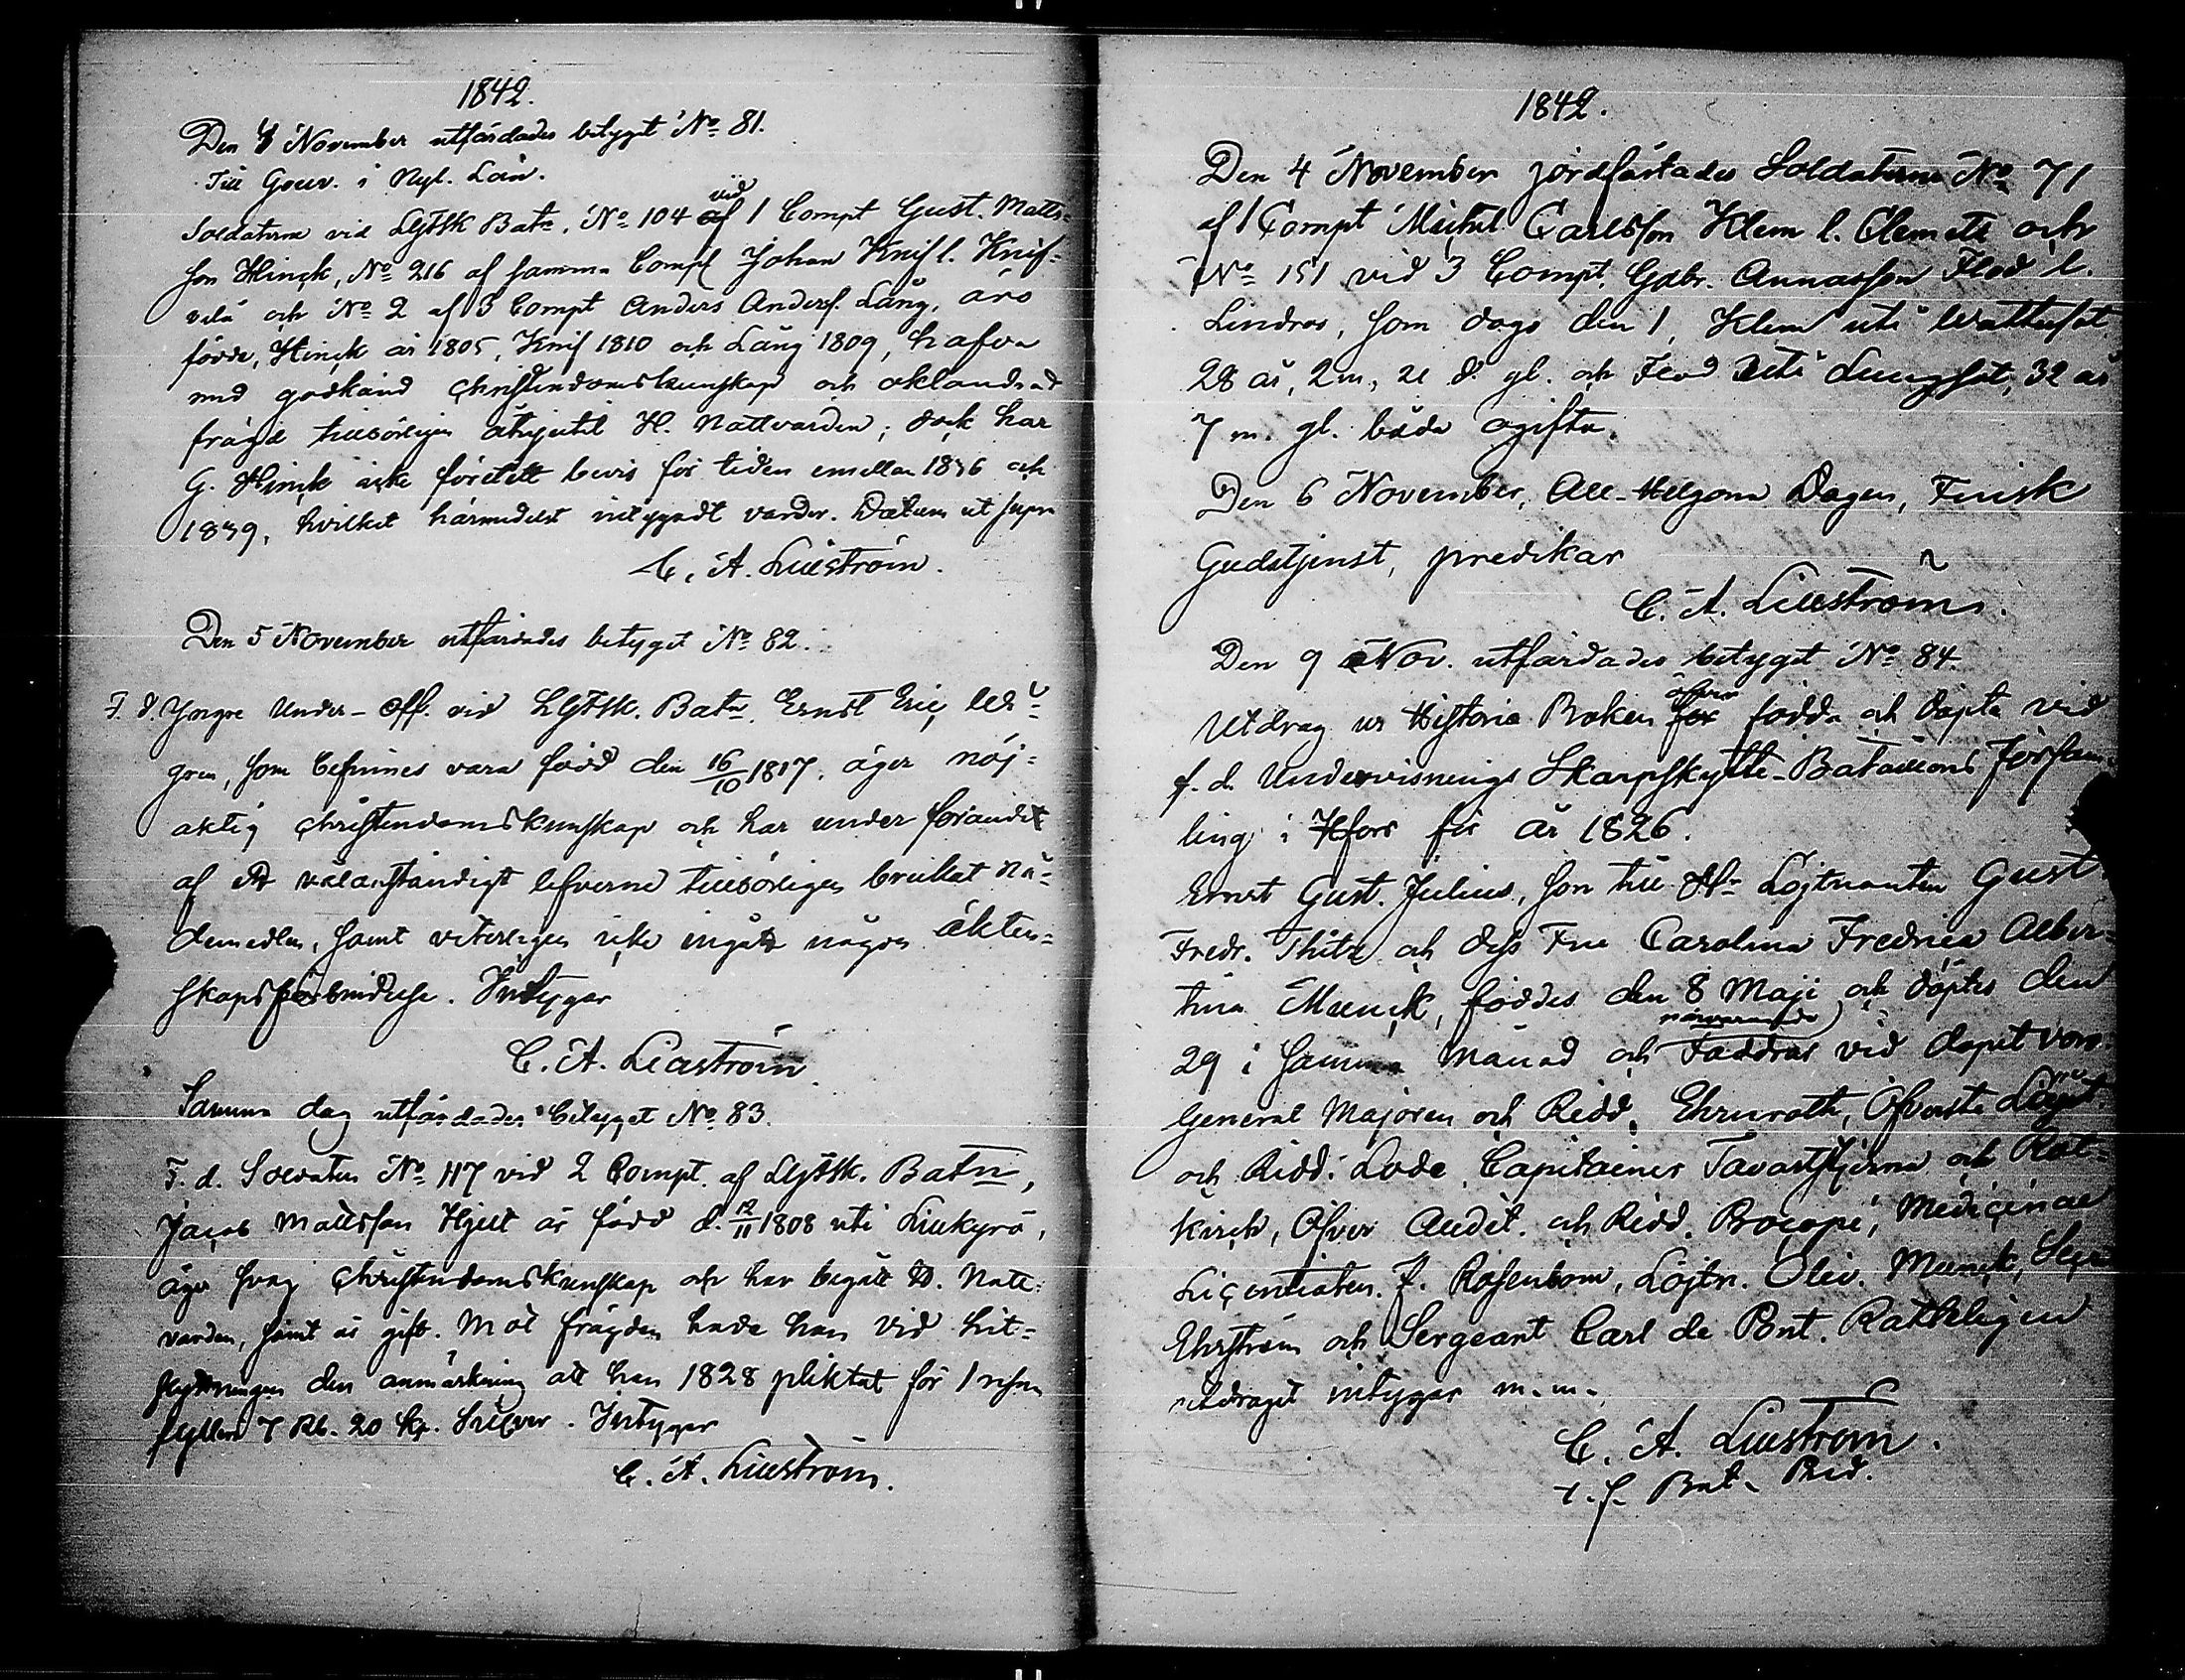 1842.
Den 4 November utfärdades betyget No 81.
Till Gouv. i Nyl. Län.
Soldaterne vid LGFSk Batn. No 104 vid 1 Compt Gust. Matts-
son Hinck, No 216 af samma Compt Johan Knif l. Knif-
vilä och No 2 af 3 Compt Anders Andersf. Lång, äro
födde, Hinck år 1805, Knif 1810 och Lång 1809, hafva
med godkänd christendomskunskap och oklandrad
frägd tillsörligen åtnjutit H. Nattvarden; dock har
G. Hinck icke företett bevis för tiden emellan 1836 och
1839, hvilket härmedelst intygadt varder. Datum ut supra
C. A. Lilliström.
Den 5 November utfärdades betyget No 82.
F. d. Yngre Under-Off. vid LGFSk. Batn. Ernst Eric
gren, som befinnes vara född den 16/10 1817, äger nöj-
aktig christendomskunskap och har under förandet
af ett välanständigt lefverne tillsörligen brukat nå-
demedlen, samt veterligen icke ingått någon äkten-
skapsförbindelse. Intygar
C. A. Lilliström
Samma dag utfärdades betyget No 83.
F. d. Soldaten No 117 vid 2 Compt. af LGFSk. Batn,
Jacob Mattsson Hjelt är född d. 12/11 1808 uti Lillkyrö,
äger svag christendomskunskap och har begått H. Natt-
varden, samt är gift. Mot frägden hade han vid hit-
flyttningen den anmärkning att han 1828 pliktat för 1 resan
fylleri 7 Rb. 20 kp. Silfver. Intygar
C. A. Lilliström.
1842.
Den 4 November jordfästades Soldaterne No 71
af 1 Compt Michel Carlsson Klem l. Clemets och
No 151 vid 3 Compt. Gabr. Annasson Flod l.
Lindros, som dogo den 1, Klem uti Wattusot
28 år, 2 m, 21 d. gl. och Flod uti Lungsot, 32 år
7 m. gl. båda ogifta.
Den 6 November, All-Helgona Dagen, Finsk
Gudstjenst, predikar
C. A. Lilliström.
Den 9 Nov. utfärdades betyget No 84
Utdrag ur Historie Boken öfver födda och döpta vid
f. d. Undervisnings Skarpskytte-Bataillons Försam-
ling i Hfors för år 1826.
Ernst Gust. Julius, son till Hr Löjtnanten Gust.
Fredr. Thitz och dess Fru Carolina Fredrica Alber-
tina Munck, föddes den 8 Maji och döptes den
29 i samma månad och närvarande Faddrar vid dopet voro
General Majoren och Ridd. Ehrnroth, Öfverste Löjtn.
och Ridd. Lode, Capitainer Tavaststjerna och Rot-
kirch, Öfver Audit. och Ridd. Procopé, Medicinæ
Licentiaten J. Rosenbom, Löjtn. Oliv. Munck, Secr.
Ehrström och Sergeant Carl de Pont. Rätteligen
utdraget intygar m. m.
C. A. Lilliström.
t. f. Bat. Pred.